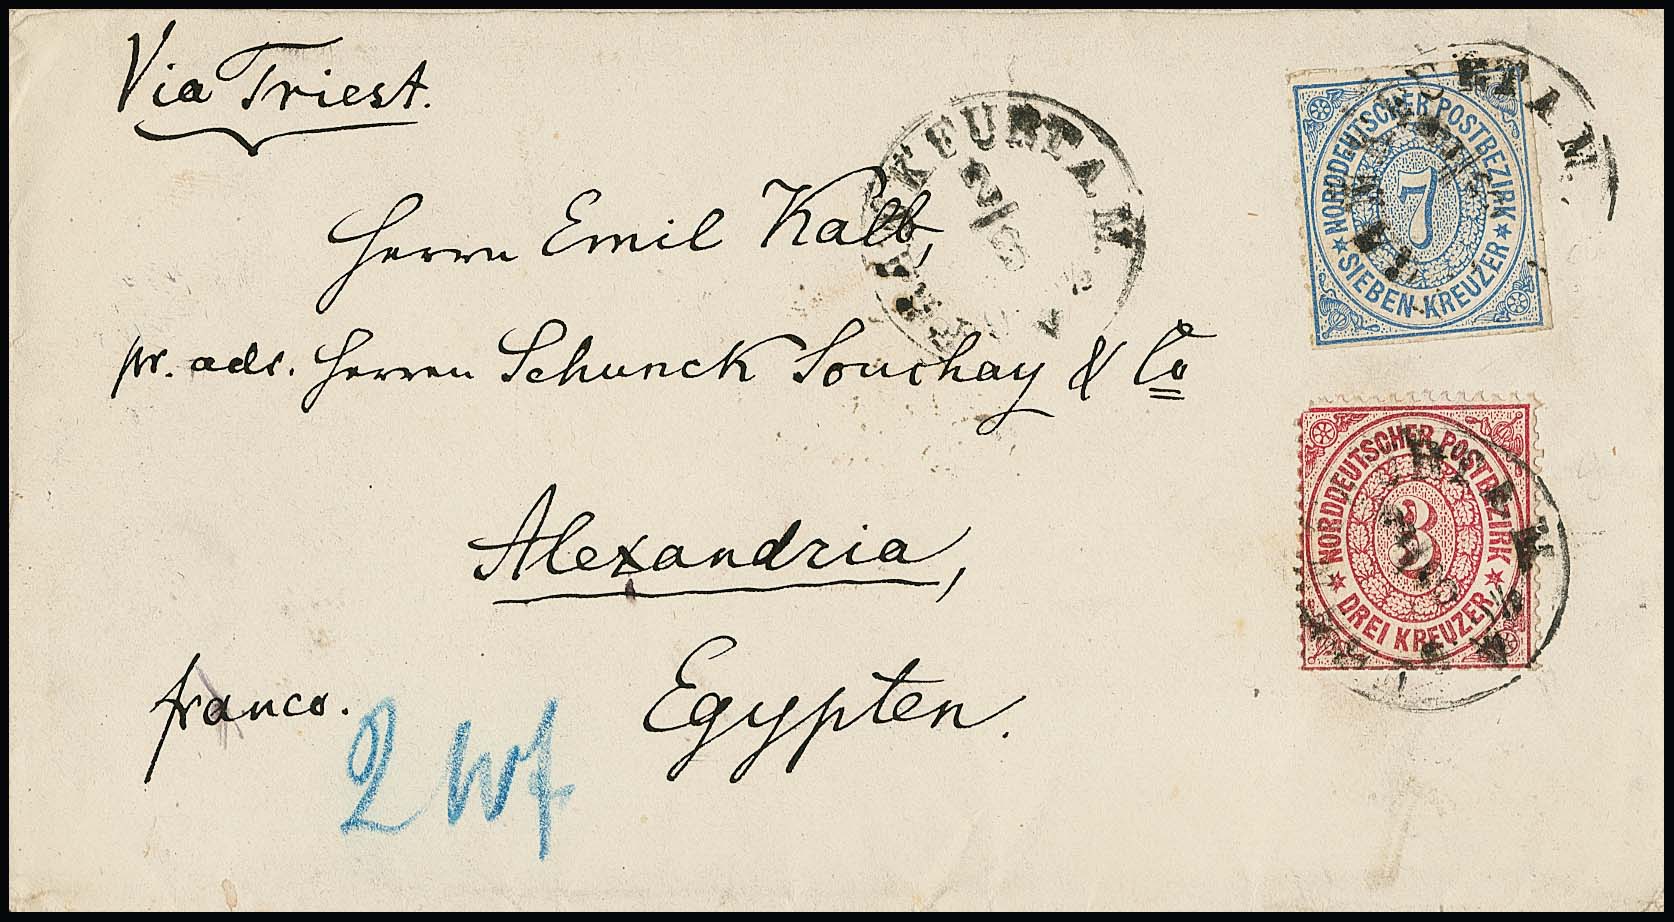 Via Triest.
Herrn Emil Kalb,
pr. adr. Herren Schunck Souchay & Co
Alexandria,
Egypten.
franco.
2 Wf
FRANKFURT A. M.
2/8
NORDDEUTSCHER POSTBEZIRK
7
SIEBEN KREUZER
NORDDEUTSCHER POSTBEZIRK
3
DREI KREUZER